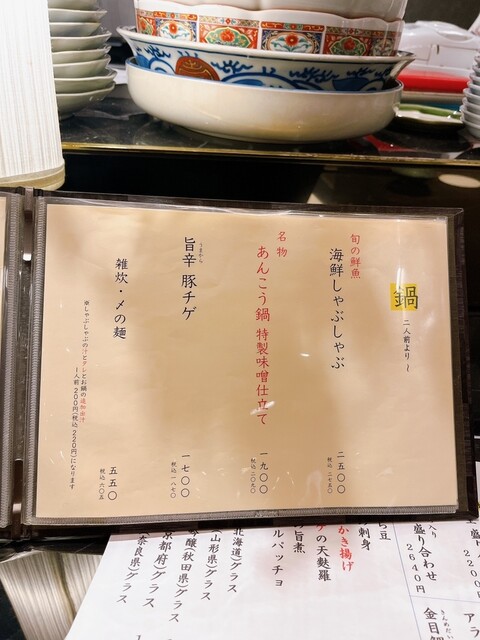 鍋 二人前より〜
旬の鮮魚
海鮮しゃぶしゃぶ 二五〇〇
税込 二七五〇
名物
あんこう鍋 特製味噌仕立て 一九〇〇
税込 二〇九〇
うまから
旨辛 豚チゲ 一七〇〇
税込 一八七〇
雑炊・〆の麺 五五〇
税込 六〇五
※しゃぶしゃぶの汁とタレとお鍋の追加出汁
一人前200円(税込220円)になります
2200
盛り合わせ
2640円
ア
きんめだい
金目鯛
刺身
かき揚げ
の天麩羅
旨煮
ルパッチョ
北海道)グラス
(山形県)グラス
醸(秋田県)グラス
京都府)グラス
奈良県)グラス